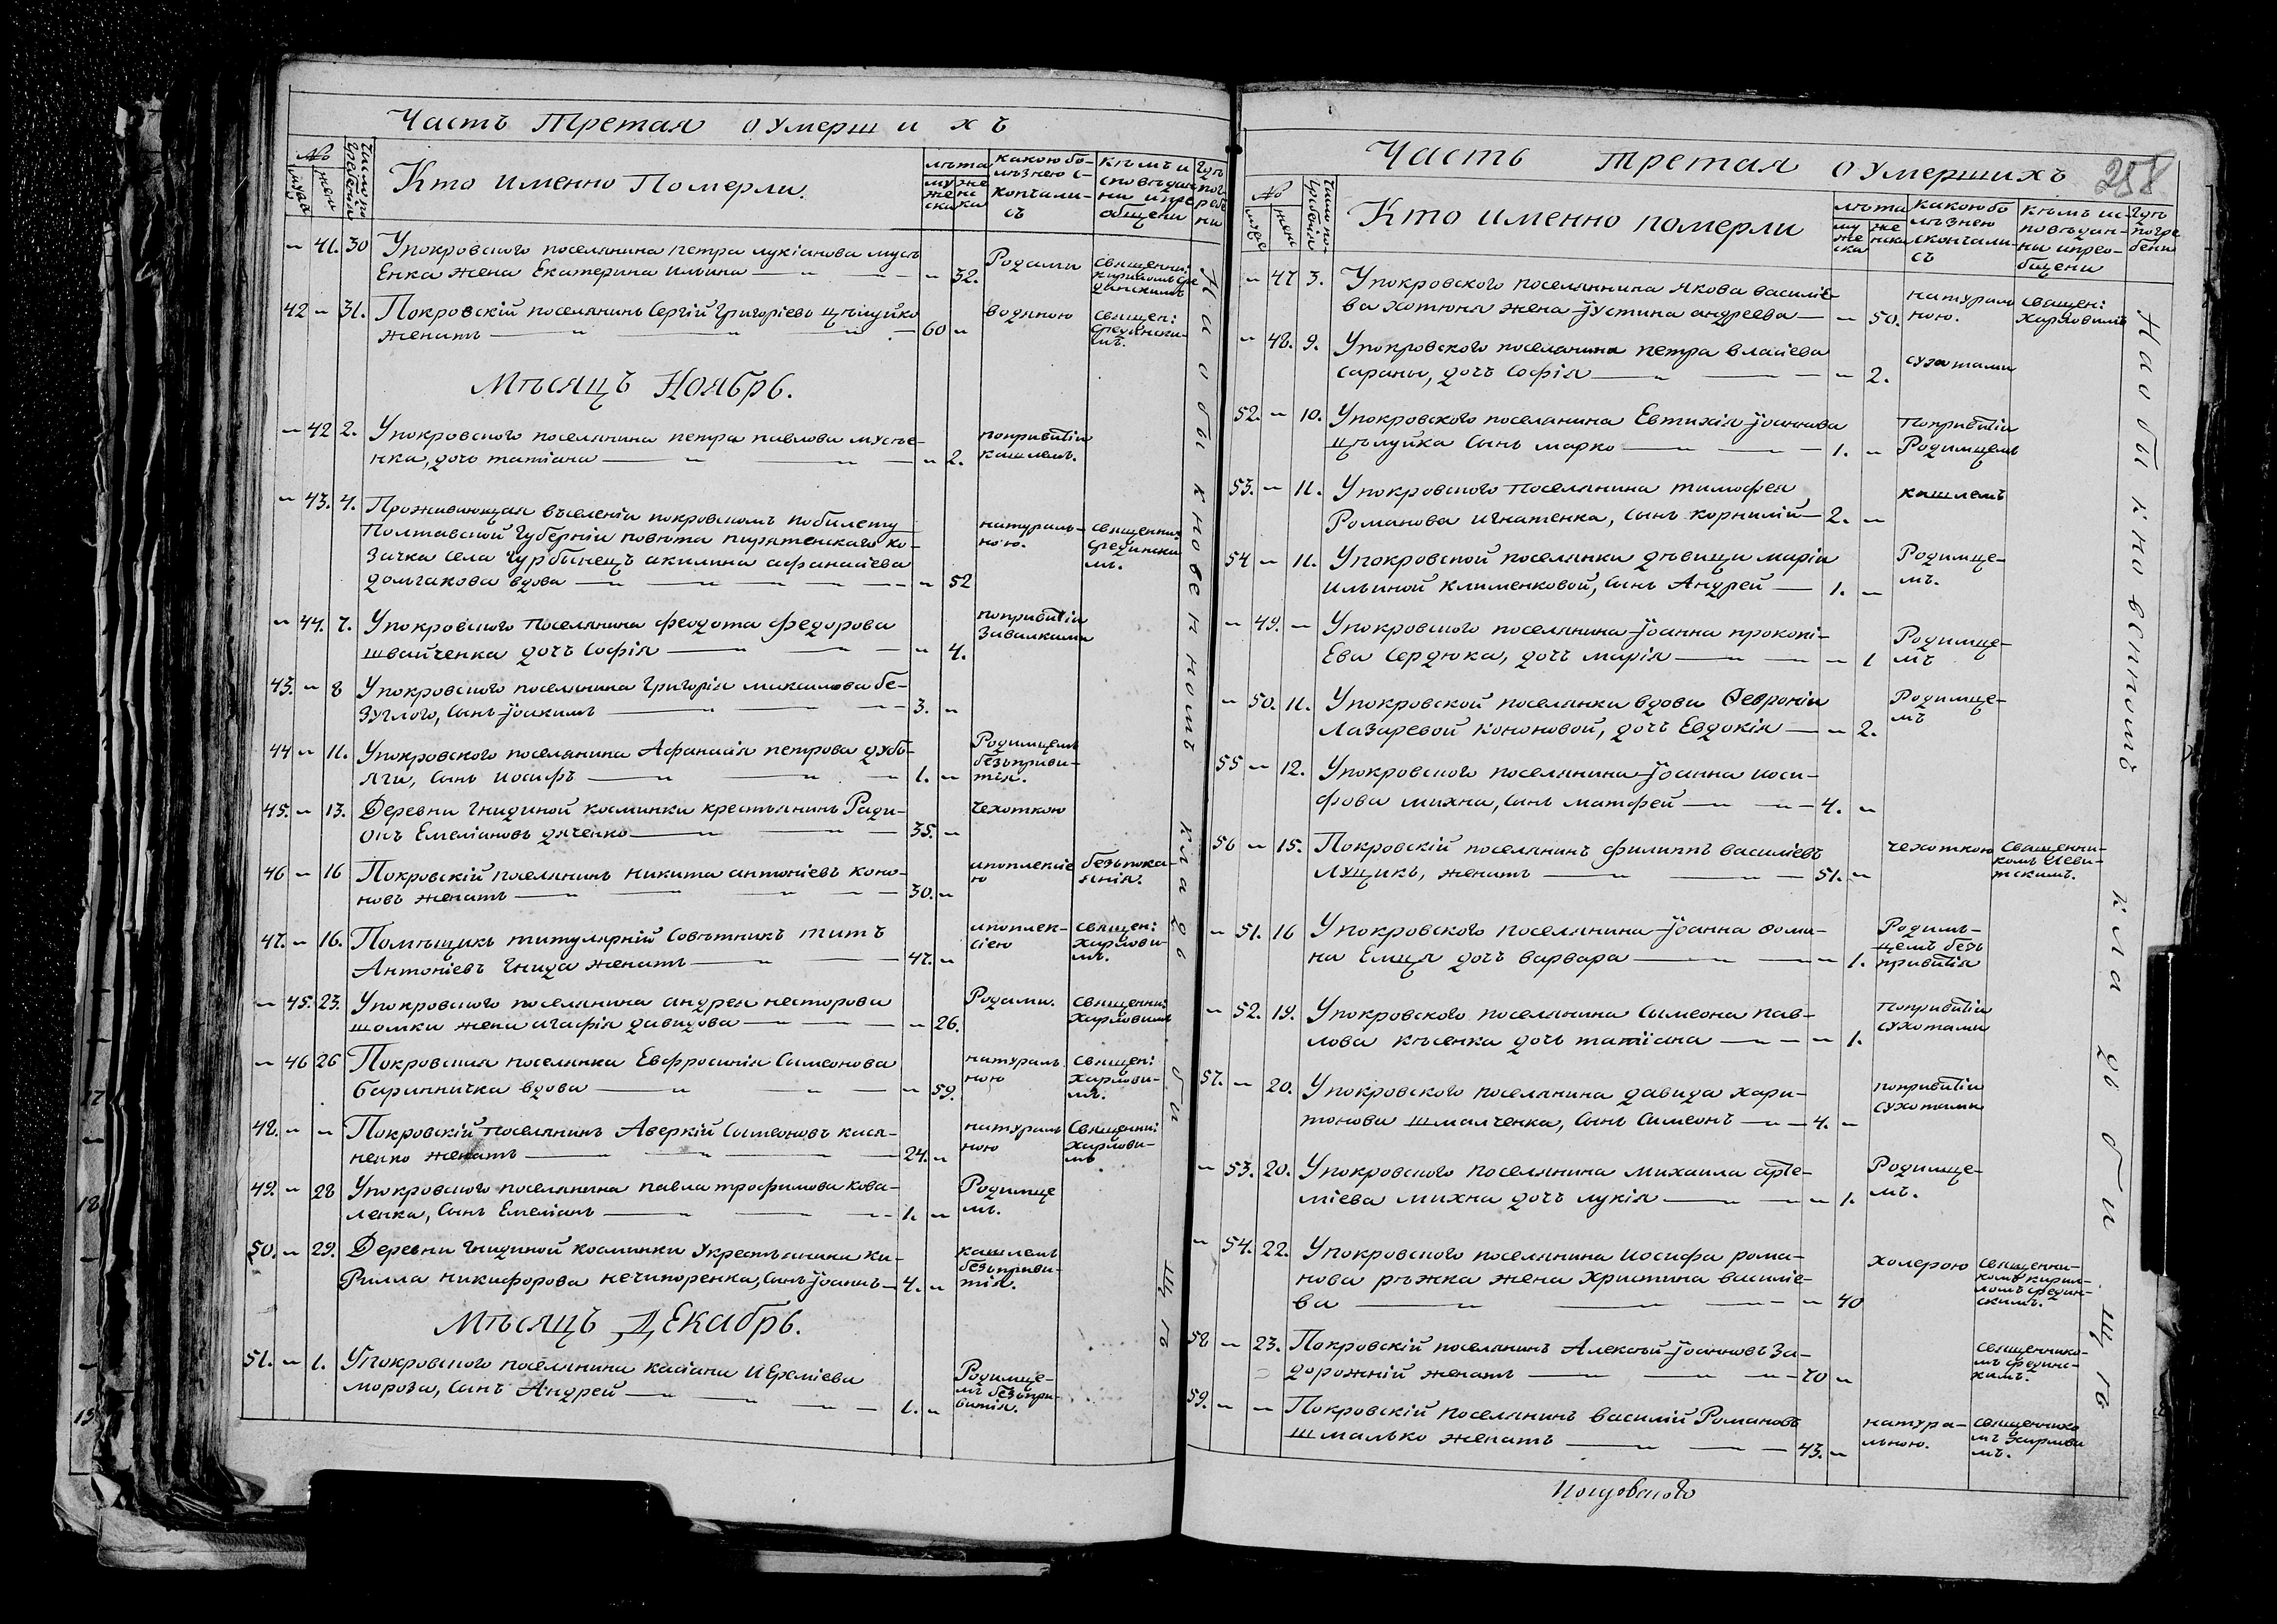 Часть третая о умершихъ
№
Число погребенія
мужес
женс
Кто именно Померли.
лѣта
мужеска
женска
какою болѣзнею скончались
кѣмъ исповѣданни и преобщени
гдѣ погребени
„ 41. 30 Упокровского поселянина петра лукіанова мусѣ-
Енка жена Екатерина ильина „ 32. Родами священни: кириломъ Срединскимъ
42 „ 31. Покровскій поселянинъ Сергій Григоріевъ цѣлуйко
женатъ 60 „ водяною священ: Срединскимъ.
Мѣсяцъ Ноябрь.
„ 42 2. Упокровского поселянина петра павлова мусѣе-
нка, дочь татіана „ 2. попривитіи кашлемъ.
„ 43. 4. Проживающая въселеніи покровскомъ побилету
Полтавской Губерніи повѣта пирятенскаго ко-
Зачка села Гурбинецъ акилина афанасіева
долгакова вдова „ 52 натуральною. священни: Срединскимъ.
„ 44. 7. Упокровского поселянина феодота федорова
швайченка дочь Софія „ 4. попривитіи Завалками
43. „ 8 Упокровского поселянина Григорія максимова бе-
Зуглого, Сынъ Іоакимъ 3. „
44 „ 11. Упокровского поселянина Афанасія петрова дубъ-
яги, Сынъ Иосифъ 1. „ Родимцемъ безъпривитія.
45. „ 13. Деревни Гнидиной косминки крестьянинъ Ради-
онъ Емеліановъ дяченко 35. „ чехоткою
46 „ 16 Покровскій поселянинъ никита антоніевъ коно-
новъ женатъ 30. „ апоплексіею безъпокаянія.
47. „ 16. Помѣщикъ титулярній Совѣтникъ титъ
Антоніевъ Гнида женатъ 47. „ апоплексіею священ: Харловимъ.
„ 45. 23. Упокровского поселянина андрея несторова
шомки жена агафія давидова „ 26. Родами. священни: Харловимъ
„ 46 26 Покровская поселянка Евфросинія Симеонова
баринничка вдова „ 59. натуральною священ: Харловимъ.
48. „ „ Покровскій поселянинъ Аверкій Сымеоновъ кася-
ненко женатъ 24. „ натуральною Священни: Харловимъ
49. „ 28 Упокровского поселянина павла трофимова кова-
ленка, Сынъ Емеліанъ 1. „ Родимцемъ.
50. „ 29. Деревни Гнидиной косминки Укрестьянина ки-
Рилла никифорова нечипоренка, Сынъ Іоаннъ 4. „ кашлемъ безъпривитія.
Мѣсяцъ ДЕкабрь.
51. „ 1. Упокровского поселянина касіана Иеремієва
мороза, Сынъ Андрей 1. „ Родимцемъ безъпривитія.
На обыкновенномъ кладбищѣ
Часть третая о умершихъ
258
№
мужес
женс
Число погребенія
Кто именно померли
лѣта
мужеска
женска
какою болѣзнею скончались
кѣмъ исповѣданни и преобщени
гдѣ погребени
„ 47 3. Упокровского поселянина якова василіе-
ва хотюна жена Іустина андреева „ 50. натуральною. священ: Харловимъ
„ 48. 9. Упокровского поселянина петра власіева
сараны, дочь Софія „ 2. сухотами
52. „ 10. Упокровского поселянина Евтихія Іоаннова
цѣлуйка Сынъ марко 1. „ попривитіи Родимцемъ
53. „ 11. Упокровского поселянина тимофея
Романова игнатенка, Сынъ корнилій 2. „ кашлемъ
54 „ 11. Упокровской поселянки дѣвицы маріи
ильиной клименковой, Сынъ Андрей 1. „ Родимцемъ.
„ 49. „ Упокровского поселянина Іоанна прокопі-
Ева Сердюка, дочь марія „ 1 Родимцемъ
„ 50. 11. Упокровской поселянки вдови Февроніи
Лазаревой кононовой, дочь Евдокія „ 2. Родимцемъ
55 „ 12. Упокровского поселянина Іоанна иоси-
фова михна, Сынъ матфей 4. „
56 „ 15. Покровскій поселянинъ филиппъ василіевъ
Лущикъ, женатъ 51. „ чехоткою Священникомъ Левитскимъ.
„ 51. 16 Упокровского поселянина Іоанна фоми-
на Емця дочь варвара „ 1. Родимцемъ безъ привитія
„ 52. 19. Упокровского поселянина Сымеона пав-
лова кѣсенка дочь татіана „ 1. попривитіи сухотами
57. „ 20. Упокровского поселянина давида хари-
тонова шмалченка, Сынъ Симеонъ 4. „ попривитіи сухотами
„ 53. 20. Упокровского поселянина михаила арте-
міева михна дочь лукія „ 1. Родимцемъ.
„ 54. 22. Упокровского поселянина иосифа рома-
нова рѣжка жена Христина василіе-
ва „ 40 холерою священникомъ кириломъ Срединскимъ.
58 „ 23. Покровскій поселянинъ Алексѣй Іоанновъ За-
дорожній женатъ 70 „ священникомъ Срединскимъ.
59. „ „ Покровскій поселянинъ василій Романовъ
шмалько женатъ 43. „ натуральною. священникомъ Харловимъ.
На обыкновенномъ кладбищѣ